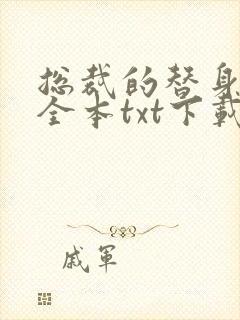 总裁的替身
全本txt下载
戚軍